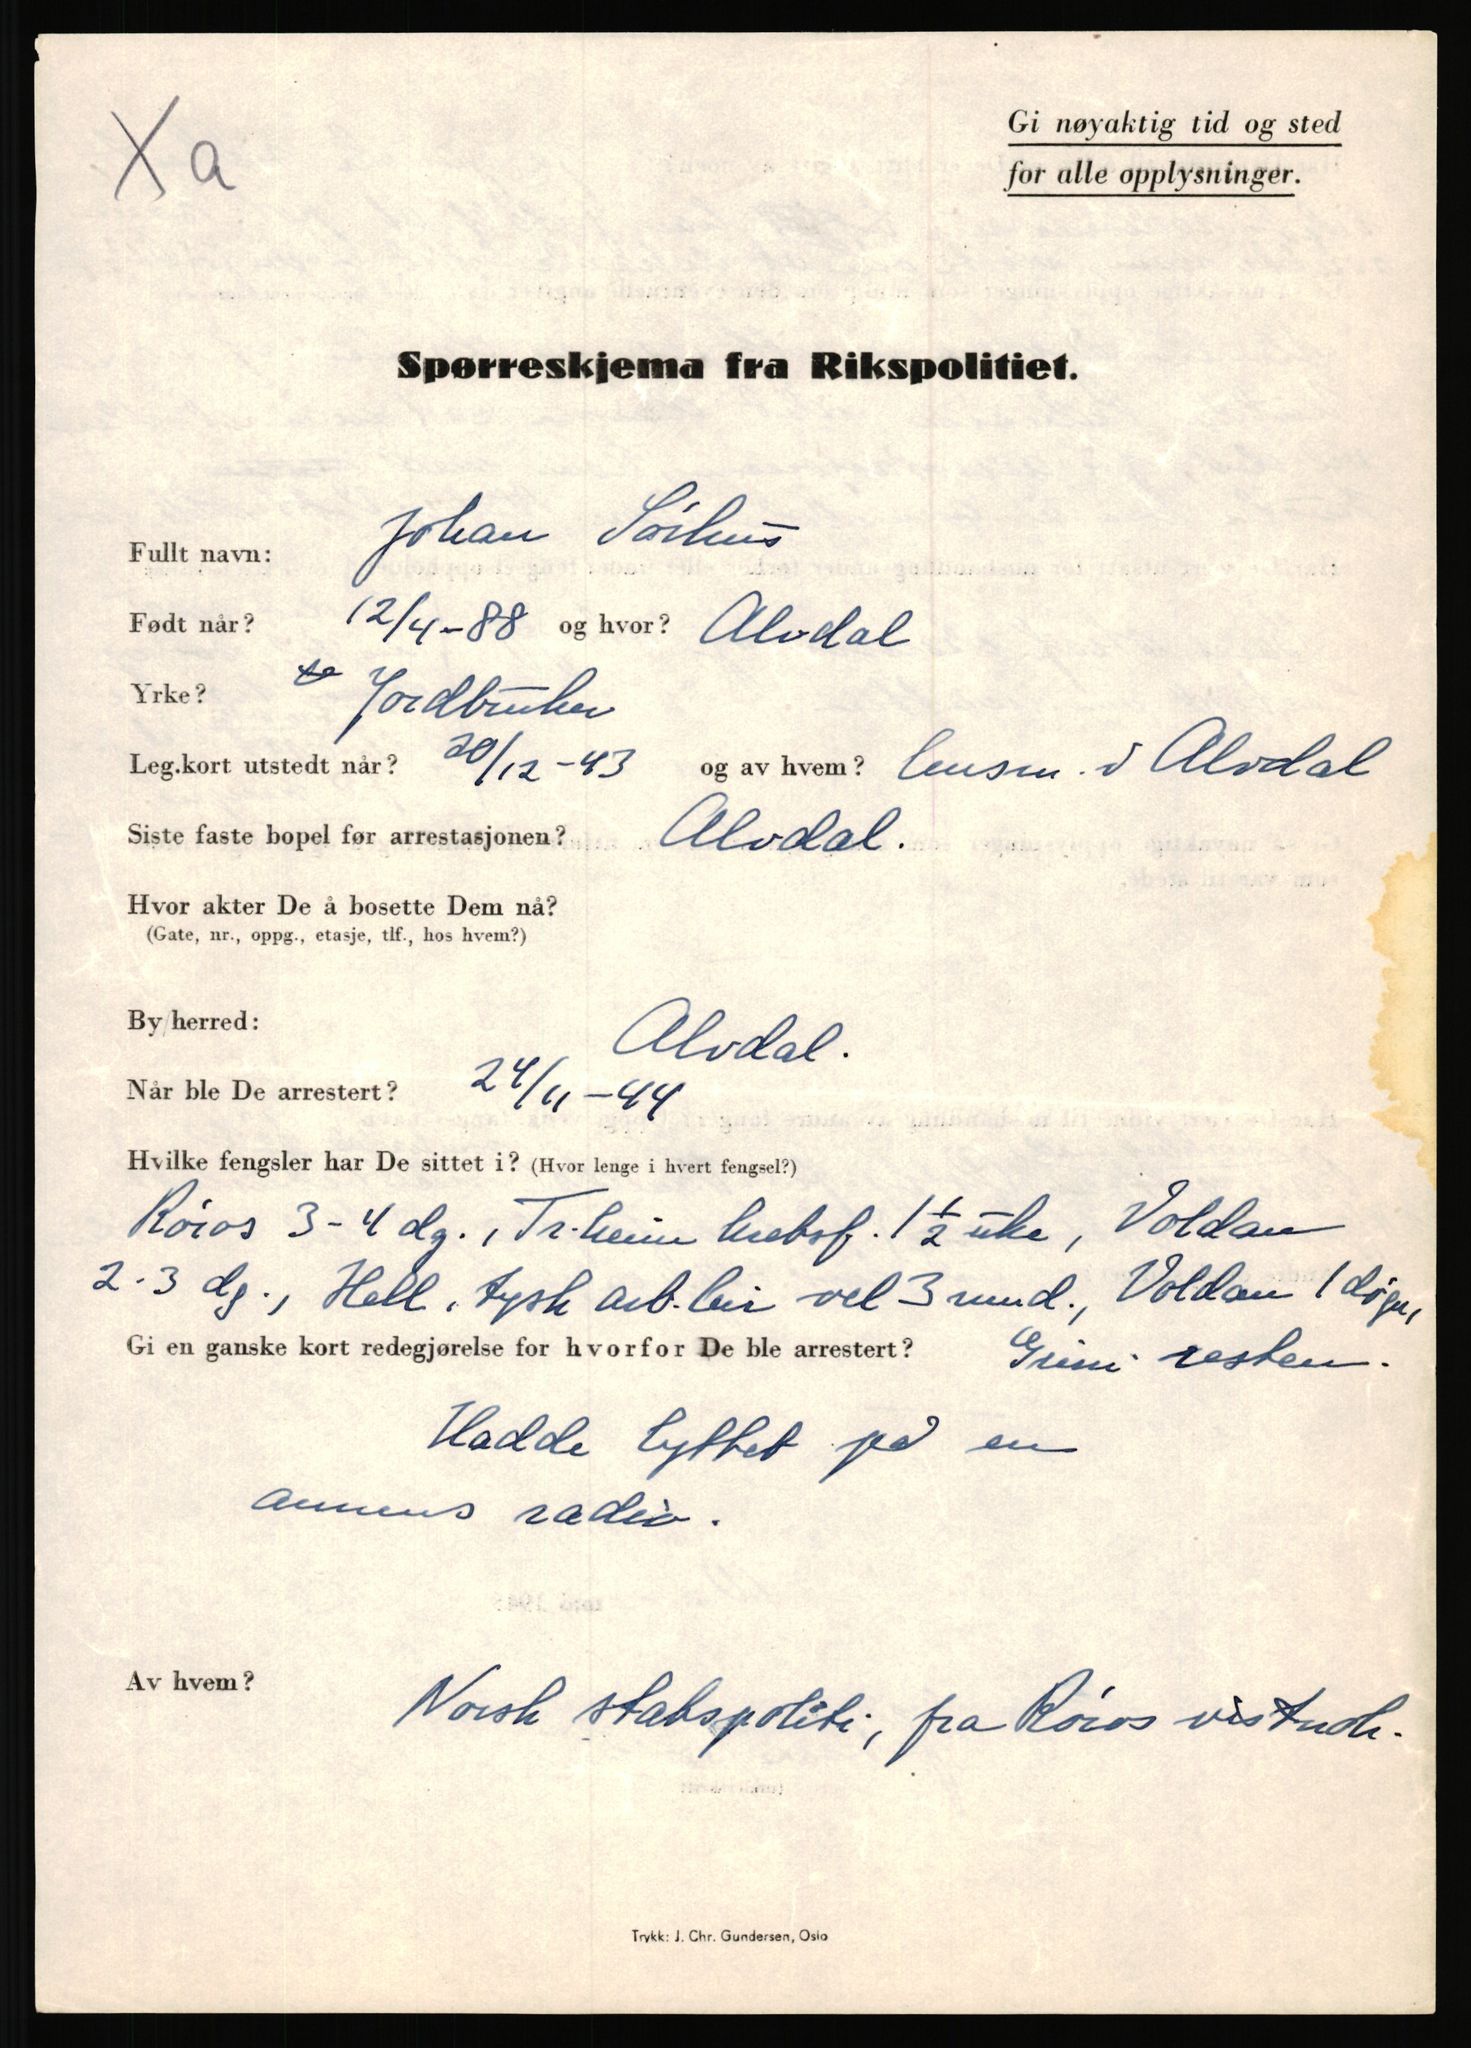 Xa
Gi nøyaktig tid og sted
for alle opplysninger.
Spørreskjema fra Rikspolitiet.
Fullt navn: Johan Sörhus
Født når? 12/4-88 og hvor? Alvdal
Yrke? Jordbruker
Leg.kort utstedt når? 20/12-43 og av hvem? lensm. i Alvdal
Siste faste bopel før arrestasjonen? Alvdal.
Hvor akter De å bosette Dem nå?
(Gate, nr., oppg., etasje, tlf., hos hvem?)
By/herred: Alvdal.
Når ble De arrestert? 24/11-44
Hvilke fengsler har De sittet i? (Hvor lenge i hvert fengsel?)
Röros 3-4 dg., Tr.heim kretsf. 1 1/2 uke, Voldan
2-3 dg., Hell, tysk arb.leir vel 3 mnd., Voldan 1 døgn,
Grini resten.
Gi en ganske kort redegjørelse for hvorfor De ble arrestert?
Hadde lyttet på en
annens radio.
Av hvem? Norsk statspoliti, fra Röros vistnok.
Trykk: J. Chr. Gundersen, Oslo